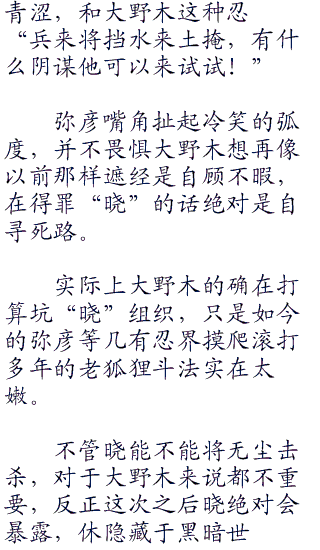 青涩，和大野木这种忍
“兵来将挡水来土掩，有什
么阴谋他可以来试试！”
弥彦嘴角扯起冷笑的弧
度，并不畏惧大野木想再像
以前那样遮经是自顾不暇，
在得罪“晓”的话绝对是自
寻死路。
实际上大野木的确在打
算坑“晓”组织，只是如今
的弥彦等几有忍界摸爬滚打
多年的老狐狸斗法实在太
嫩。
不管晓能不能将无尘击
杀，对于大野木来说都不重
要，反正这次之后晓绝对会
暴露，休隐藏于黑暗世